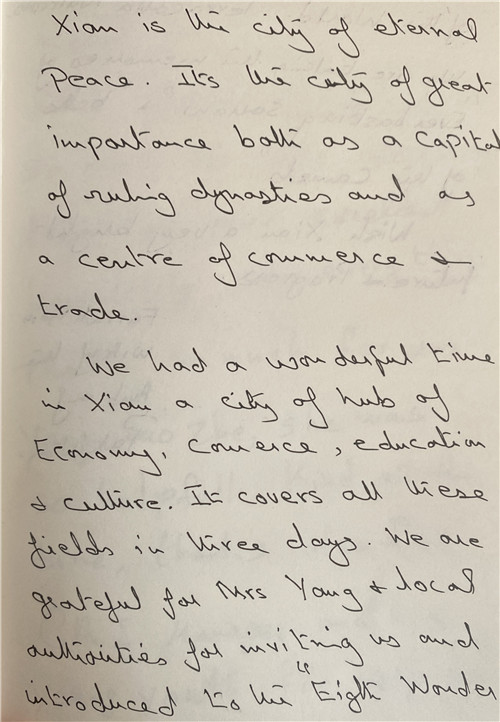 Xian is the city of eternal
Peace. Its the city of great
importance both as a capital
of ruling dynasties and as
a centre of commerce &
trade.
We had a wonderful time
in Xian a city of hub of
Economy, comerce, education
& culture. It covers all these
fields in three days. We are
grateful for Mrs Yang & local
authorities for inviting us and
introduced to the "Eigth Wonder